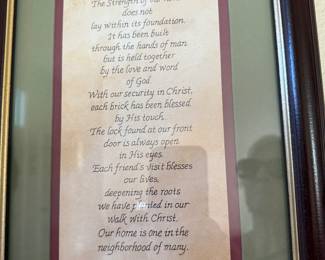 The Strength of our
does not
lay within its foundation.
It has been built
through the hands of man
but is held together
by the love and word
of God.
With our security in Christ,
each brick has been blessed
by His touch.
The lock found at our front
door is always open
in His eyes.
Each friend's visit blesses
our lives,
deepening the roots
we have planted in our
walk with Christ.
Our home is one in the
neighborhood of many.